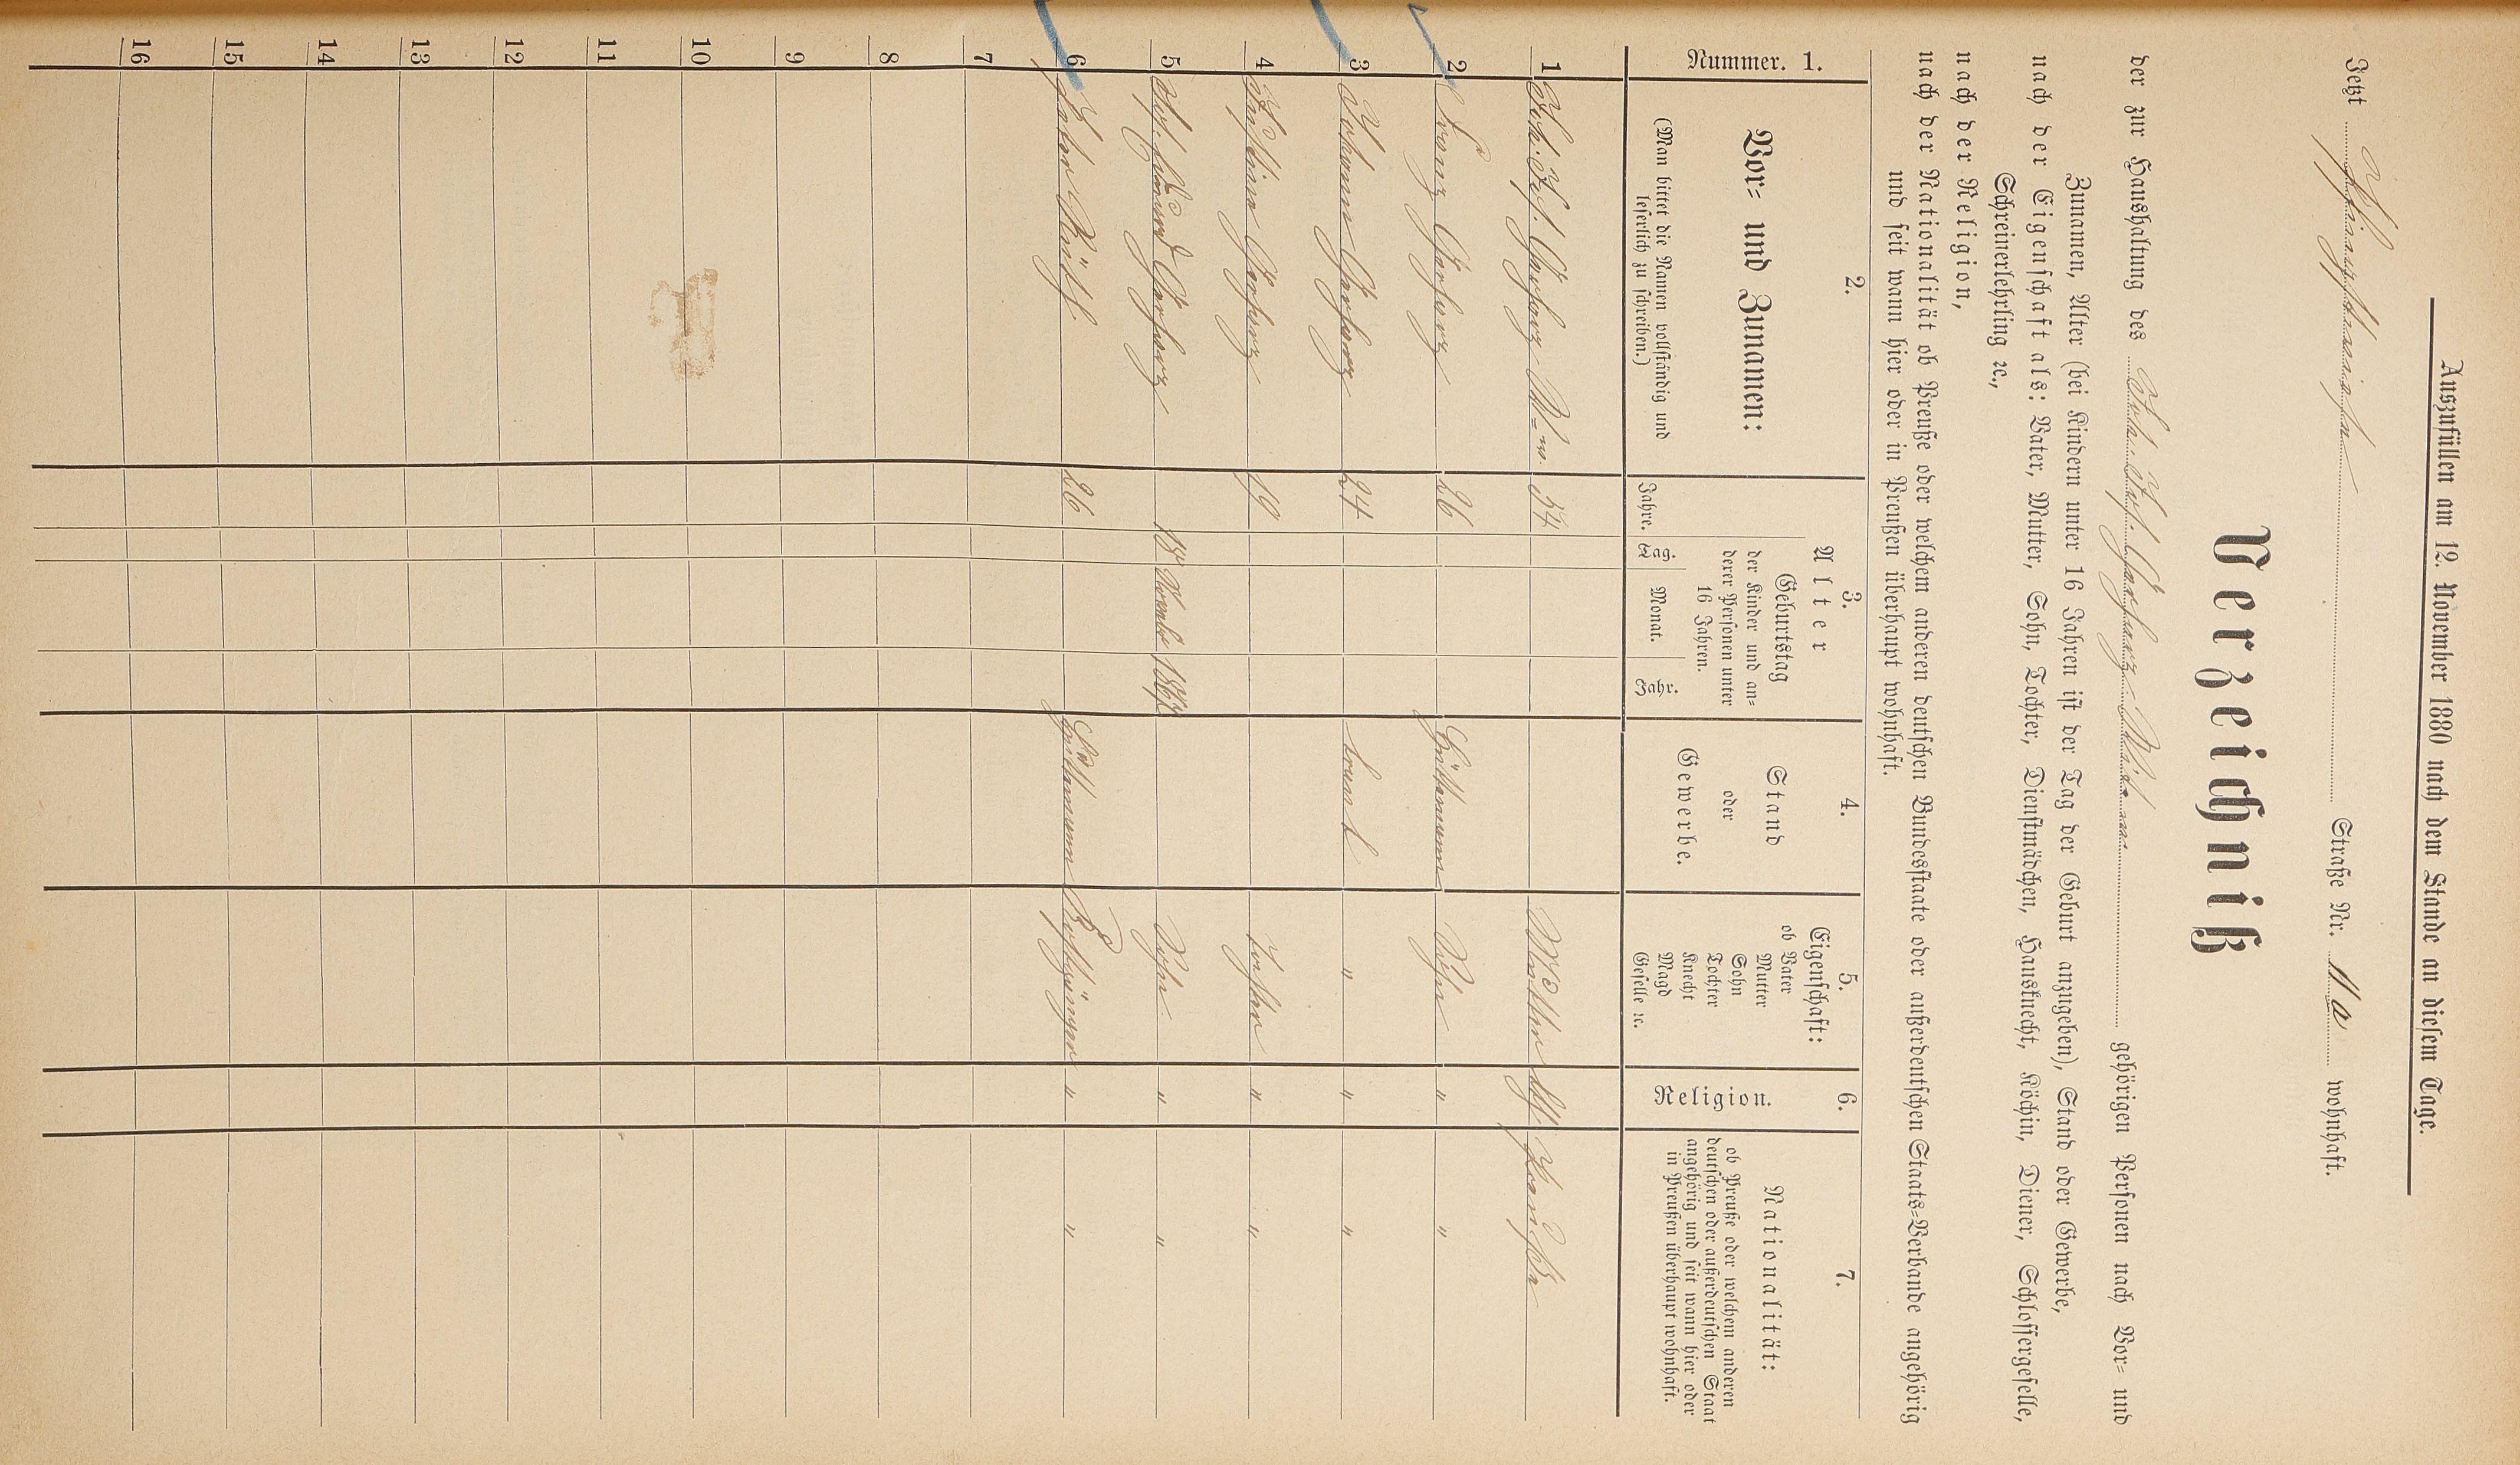 Auszufüllen am 12. November 1880 nach dem Stande an diesem Tage.
Jetzt Straße Nr. 11a wohnhaft.
Verzeichniß
der zur Haushaltung des Joh. Jos. Gerharz Wittwe gehörigen Personen nach Vor= und
Zunamen, Alter (bei Kindern unter 16 Jahren ist der Tag der Geburt anzugeben), Stand oder Gewerbe,
nach der Eigenschaft als: Vater, Mutter, Sohn, Tochter, Dienstmädchen, Hausknecht, Köchin, Diener, Schlossergeselle,
Schreinerlehrling ꝛc.,
nach der Religion,
nach der Nationalität ob Preuße oder welchem anderen deutschen Bundesstaate oder außerdeutschen Staats=Verbande angehörig
und seit wann hier oder in Preußen überhaupt wohnhaft.
Nummer. 1.
2.
Vor= und Zunamen:
(Man bittet die Namen vollständig und
leserlich zu schreiben.)
3.
Alter
Jahre.
Geburtstag
der Kinder und an=
derer Personen unter
16 Jahren.
Tag. Monat. Jahr.
4.
Stand
oder
Gewerbe.
5.
Eigenschaft:
ob Vater
Mutter
Sohn
Tochter
Knecht
Magd
Geselle ꝛc.
6.
Religion.
7.
Nationalität:
ob Preuße oder welchem anderen
deutschen oder außerdeutschen Staat
angehörig und seit wann hier oder
in Preußen überhaupt wohnhaft.
1 Joh. Jos. Gerharz Ww. 54 Mutter Preuße
2 Franz Gerharz 26 Hüttenmann Sohn " "
3 Johann Gerharz 24 " " "
4 Gerharz 19 Tochter " "
5 Gerharz 18 Sohn " "
6 26 Hüttenmann Kostgänger " "
7
8
9
10
11
12
13
14
15
16